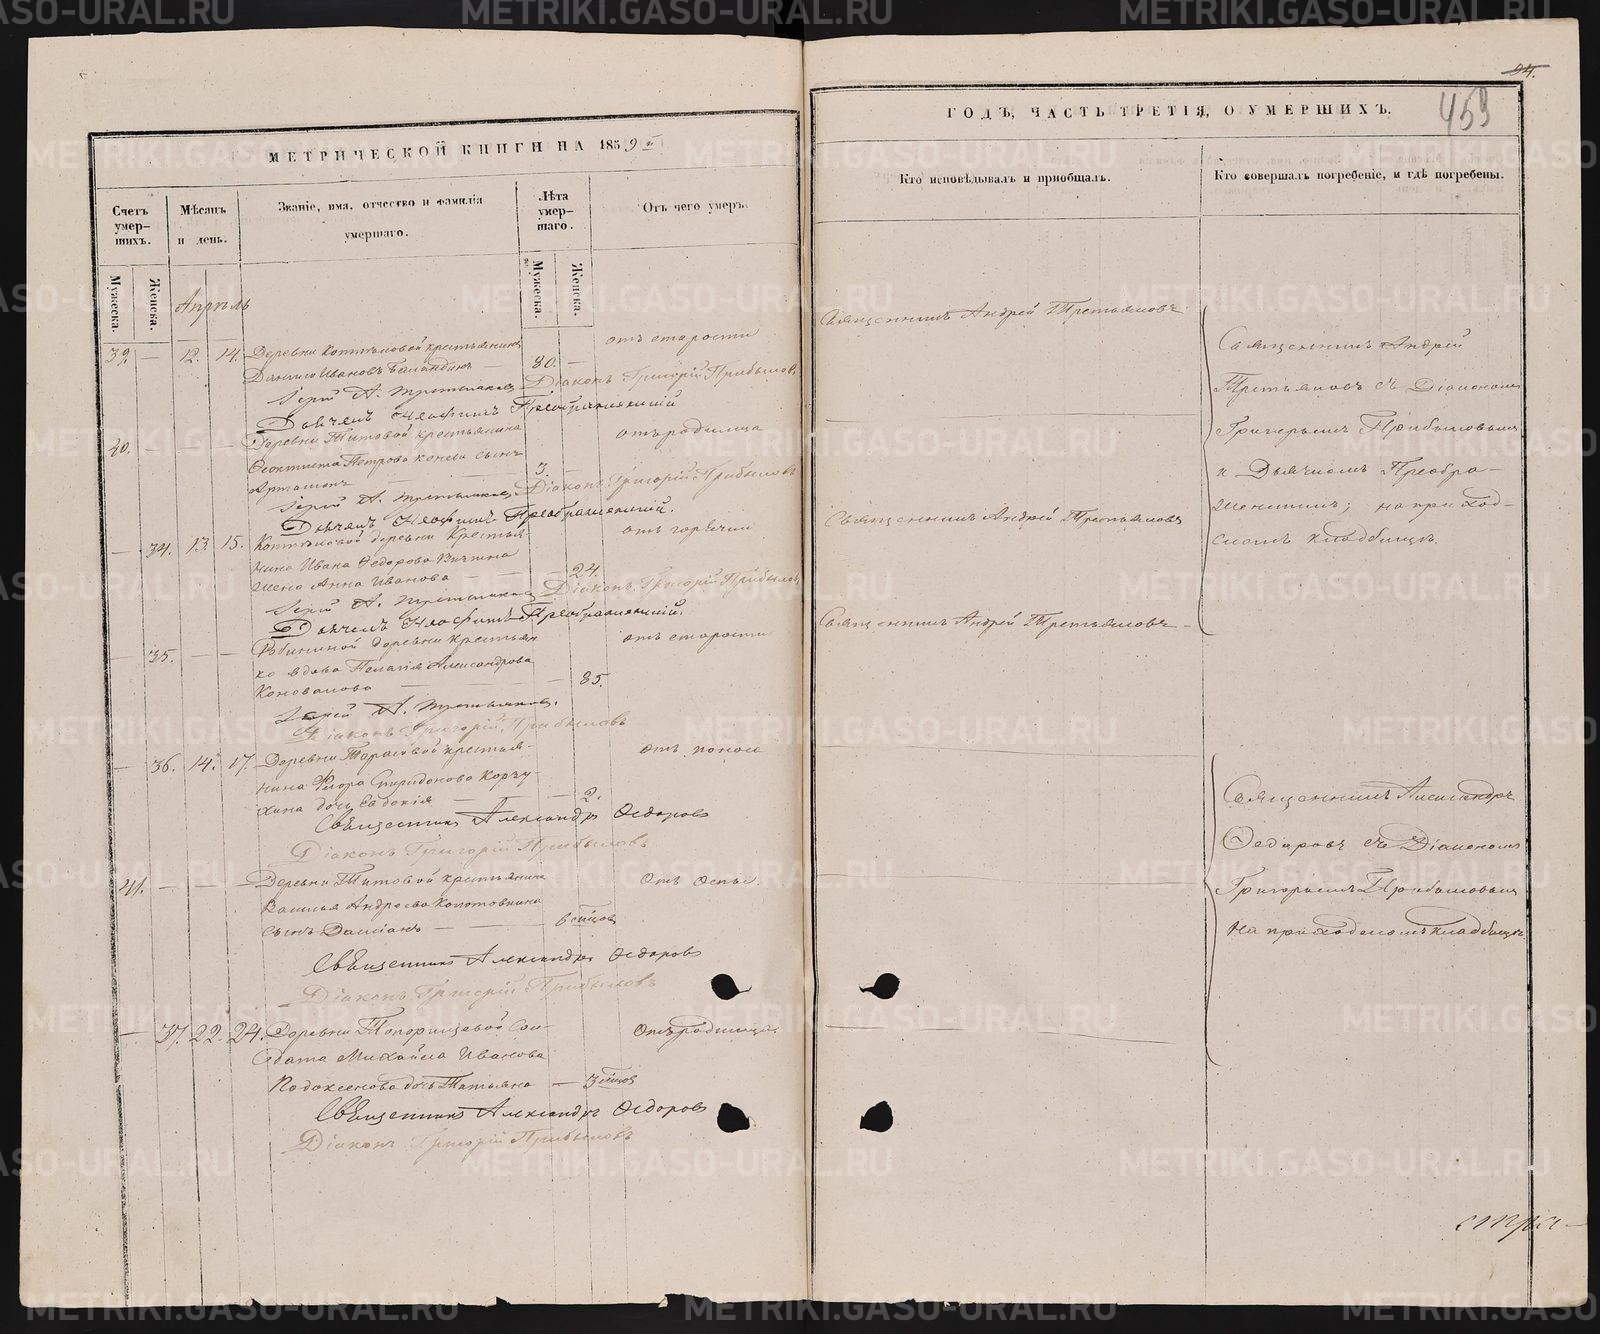 МЕТРИЧЕСКОЙ КНИГИ НА 1859й
Счетъ умер-шихъ.
Мѣсяцъ и день.
Званіе, имя, отчество и фамилія умершаго.
Лѣта умер-шаго.
Отъ чего умеръ.
Мужеска.
Женска.
Мужеска.
Женска.
Апрѣль
39. — 12. 14. Деревни Коптѣловой крестьянинъ
отъ старости
Данило Ивановъ Баландинъ — 80. —
Іерей А. Третьяковъ Діаконъ Григорій Прибылов
Дьячекъ Неофитъ Преображенскій
40. — — — Деревни Титовой крестьянина
отъ родимца
Феоктиста Петрова сынъ
Артамонъ — 3. —
Іерей А. Третьяковъ Діаконъ Григорій Прибыловъ
Дьячекъ Неофитъ Преображенскій.
— 34. 13. 15. Коптѣловой деревни крестья-
отъ горячки
нина Ивана Федорова
жена Анна Иванова — 24.
Іерей А. Третьяковъ Діаконъ Григорій Прибылов
Дьячекъ Неофитъ Преображенскій.
— 35. — — деревни крестьян
отъ старости
ка вдова Пелагія Александрова
Коновалова — 85.
Іерей А. Третьяковъ.
Діаконъ Григорій Прибыловъ
— 36. 14. 17. Деревни Тарасовой крестья-
отъ поноса
нина Флора Спиридонова Корчу-
хина дочь Евдокія — 2.
Священникъ Александръ Федоровъ
Діаконъ Григорій Прибыловъ
41. — — — Деревни Титовой крестьянина
Отъ Оспы.
Василья Андреева Колотовкина
сынъ Дамианъ — 6 мѣсяцов
Священникъ Александръ Федоровъ
Діаконъ Григорій Прибыловъ
— 37. 22. 24. Деревни Топорищевой Сол-
Отъ родимца
дата Михайла Иванова
Подоксенова дочь Татьяна — 3 мѣсяцов
Священникъ Александръ Федоровъ
Діаконъ Григорій Прибыловъ
94.
459
ГОДЪ, ЧАСТЬ ТРЕТІЯ, О УМЕРШИХЪ.
Кто исповѣдывалъ и пріобщалъ.
Кто совершалъ погребеніе, и гдѣ погребены.
Священникъ Андрей Третьяковъ
Священникъ Андрей Третьяковъ
Священникъ Андрей Третьяковъ
Священникъ Андрей
Третьяковъ съ Діакономъ
Григорьемъ Прибыловымъ
и Дьячкомъ Преобра-
женскимъ; на приход-
скомъ кладбищѣ.
Священникъ Александръ
Федоровъ съ Діакономъ
Григорьемъ Прибыловымъ
На приходскомъ кладбищѣ
METRIKI.GASO-URAL.RU